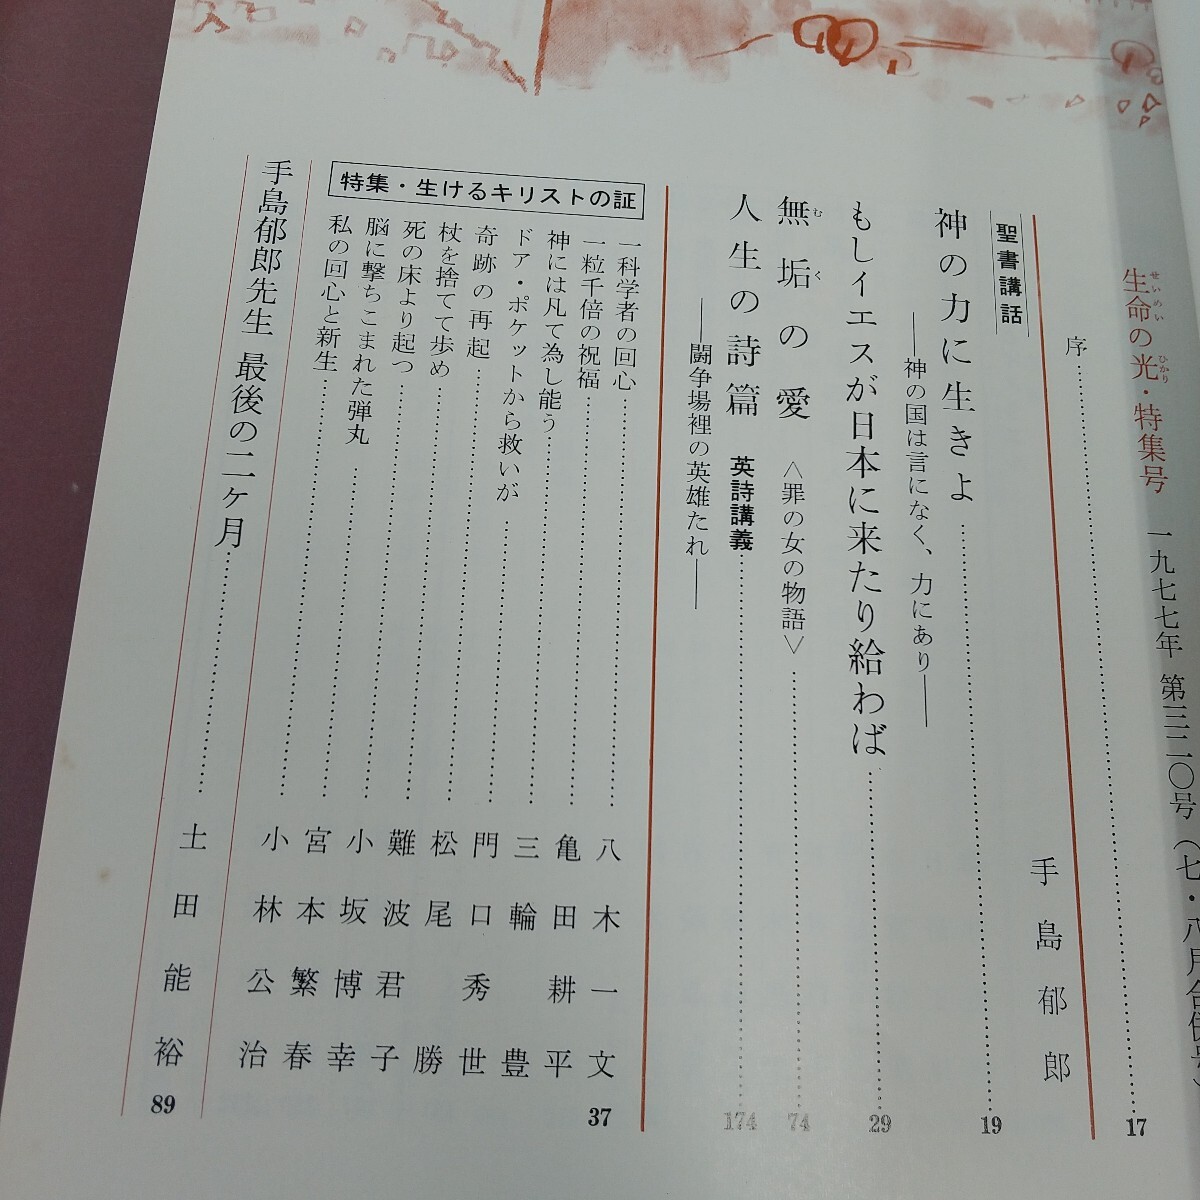 生命の光・特集号 一九七七年 第三二〇号(七・八月合併号)
せいめい ひかり
序 17
手島郁郎
聖書講話
神の力に生きよ 19
――神の国は言になく、力にあり――
もしイエスが日本に来たり給わば 29
無垢の愛 〈罪の女の物語〉 74
むく
人生の詩篇 英詩講義 174
――闘争場裡の英雄たれ――
特集・生けるキリストの証 37
一科学者の回心 八木一文
一粒千倍の祝福 亀田耕平
神には凡て為し能う 三輪豊
ドア・ポケットから救いが 門口秀世
奇跡の再起 松尾勝
杖を捨てて歩め 難波君子
死の床より起つ 小坂博幸
脳に撃ちこまれた弾丸 宮本繁春
私の回心と新生 小林公治
手島郁郎先生 最後の二ヶ月 土田能裕 89